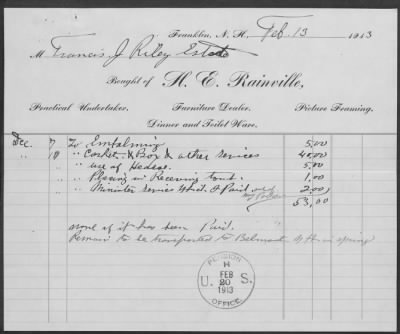 Franklin, N. H. Feb. 13 1913
M Francis J Riley Estate
Bought of H. E. Rainville,
Practical Undertaker. Furniture Dealer. Picture Framing.
Dinner and Toilet Ware.
Dec. 7 To Embalming 5,00
" 10 " Casket & Box & other services 40,00
" use of Hearse. 5,00
" Placing in Receiving tomb. 1,00
" Minister Services which I Paid 2,00
53,00
none of it has been Paid.
Remain to be transported to Belmont N H in spring
PENSION
H
FEB
U. 20 S.
1913
OFFICE.